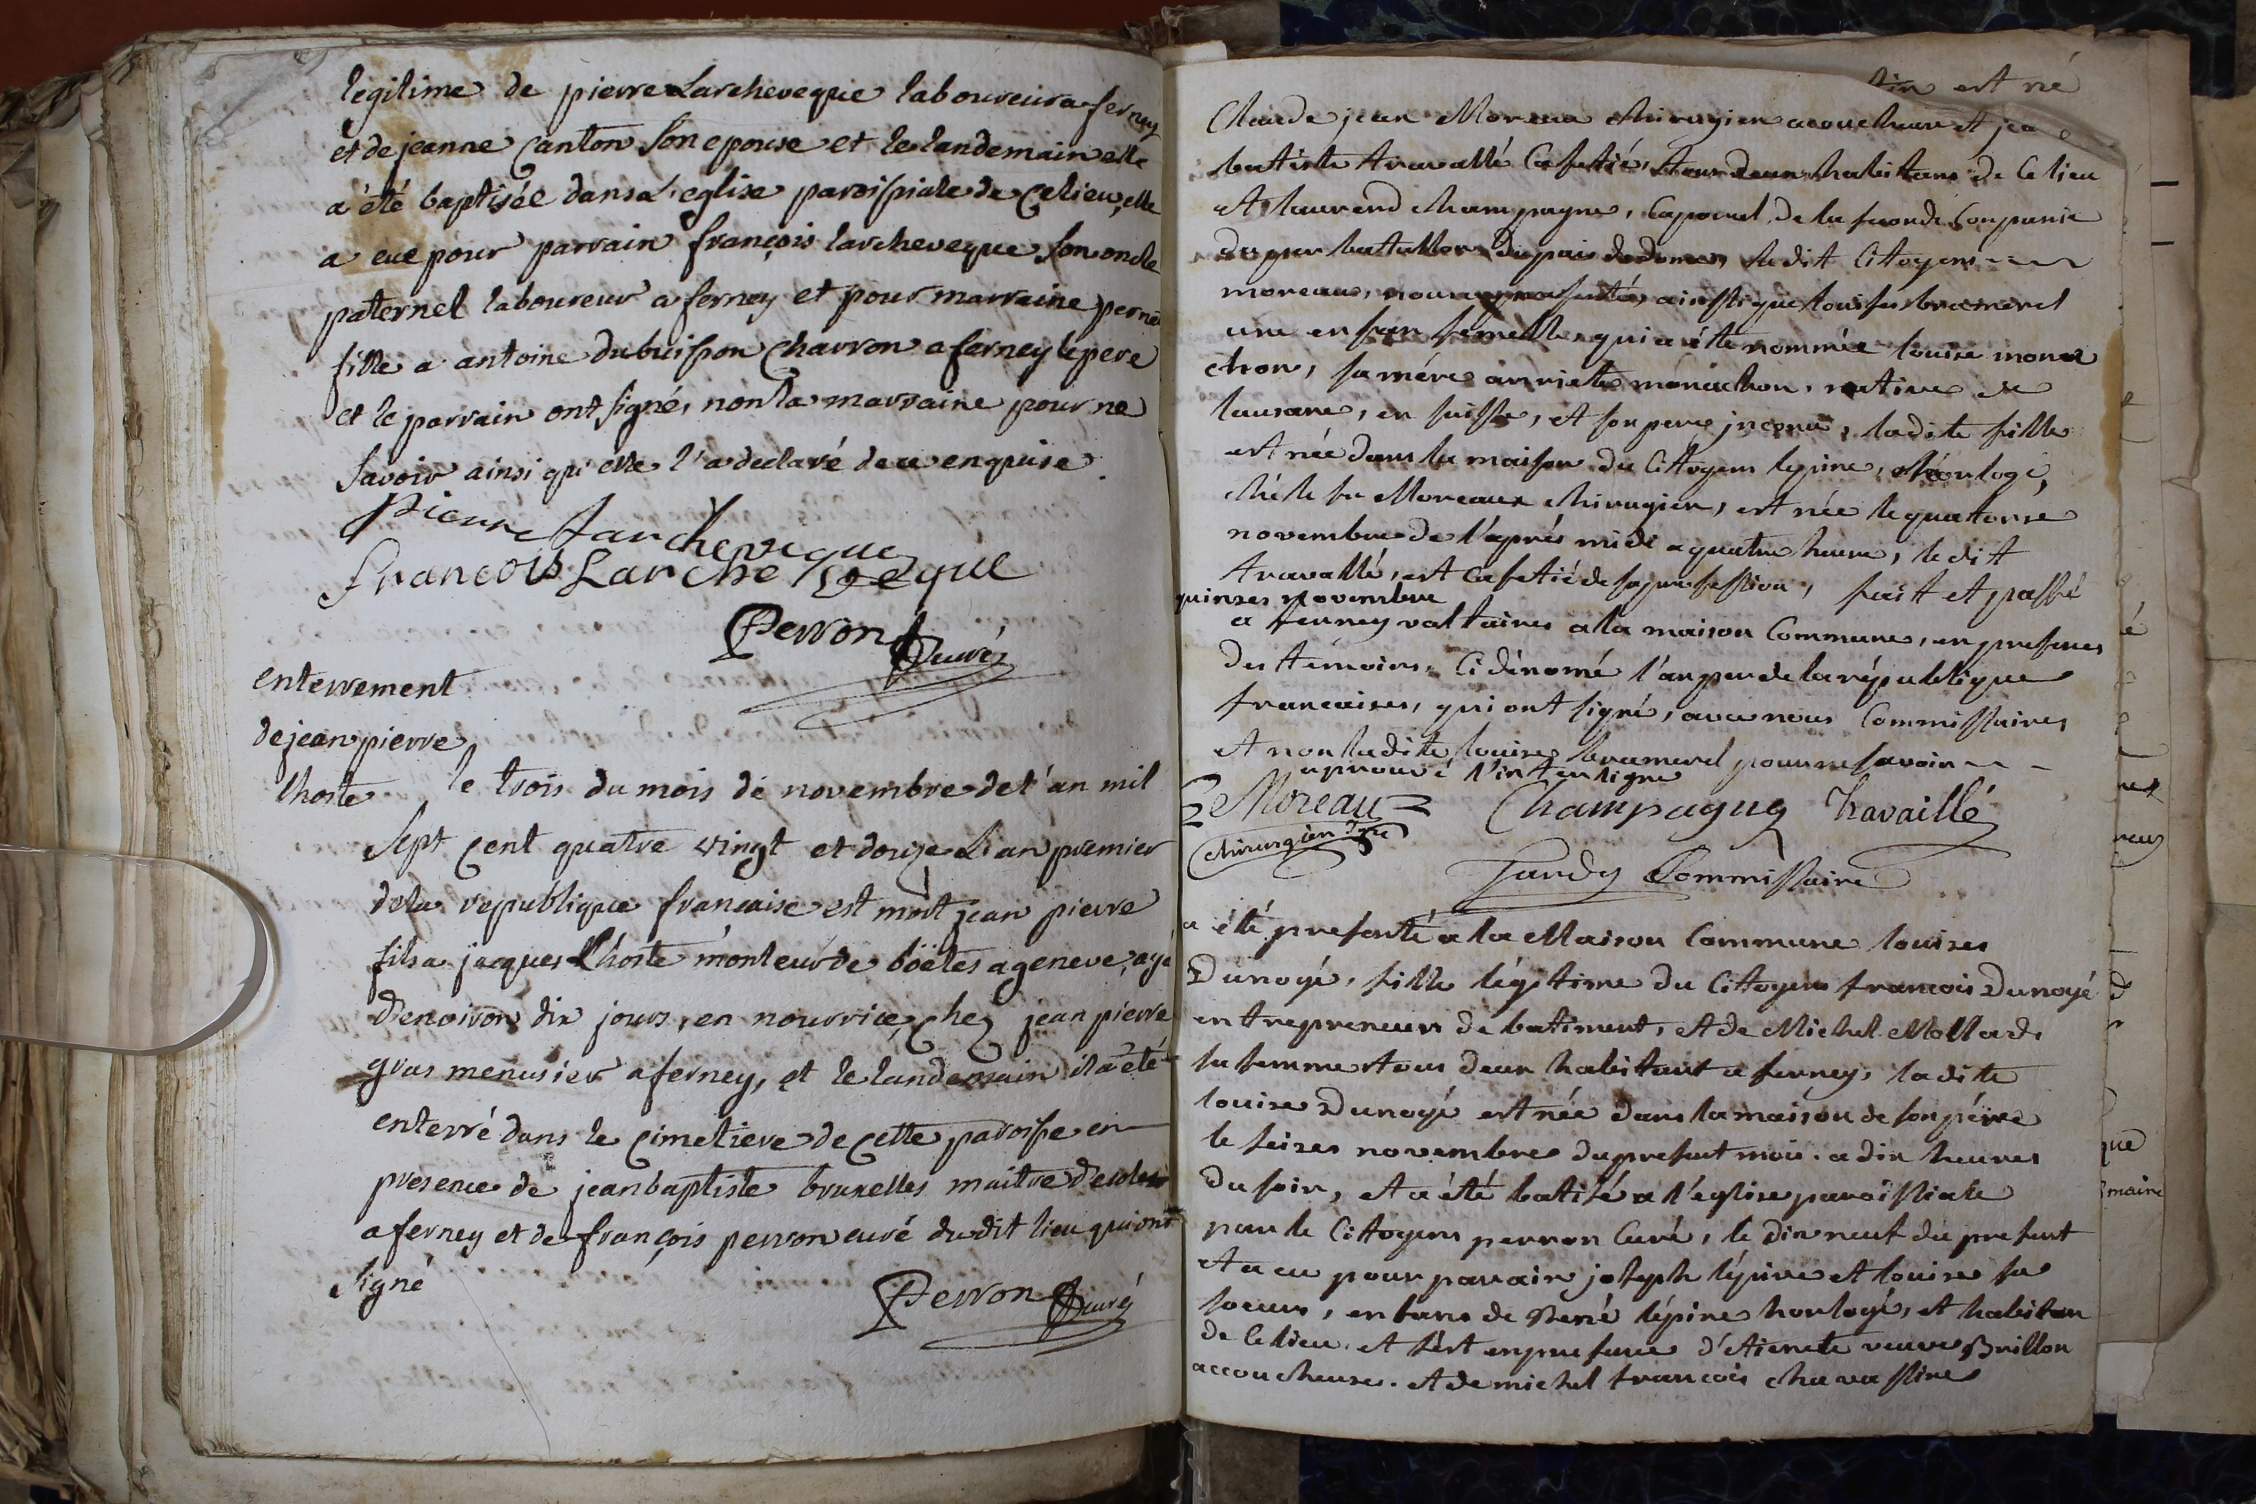 legitime de pierre Larcheveque laboureur a ferney
et de jeanne Canton Son epouse et le landemain elle
a été baptisée dans L'eglise paroissiale de Celieu, elle
a eue pour parrain françois larcheveque Son oncle
paternel laboureur a ferney et pour marraine
fille a antoine Dubuisson Charron a ferney le pere
et le parrain ont signé, non la marraine pour ne
Savoir ainsi qu'elle l'a declaré de ce enquise.
Pierre Larcheveque
François Larcheveque
Perron Curé
enterrement
de jean pierre
lhoste
le trois du mois de novembre de l'an mil
Sept Cent quatre vingt et douze L'an premier
dela republique francaise est mort jean pierre
fils a jacques Lhoste monteur de boëtes a geneve, agé
D'enoiron dix jours, en nourrice chez jean pierre
gras menusier a ferney, et le landemain il a été
enterré dans le Cimetiere de Cette paroisse en
presence de jean baptiste bruxelles maitre d'ecoles
a ferney et de françois perron curé du dit lieu qui ont
Signé
Perron Curé
est né
Claude jean Moreau chirugien acoucheur et
batiste travallé Cafetié, tous deux habitans de Ce lieu
et laurend champagne, Caporal de la seconde Companie
du per batallon du pais ledit Citoyens
moreau, nous a presenté, ainssi que louise bramerel
une enfan femelle qui a été nommée louise mona
chon, sa mére anriete monachon, native de
lausane, en suisse, et son pere jnconu, ladite fille
est née dans la maison du Citoyens lepine, orlogé,
ché le sr Moreaux chirugien, est née le quatorse
novembre de l'aprés midi a quatre heure, le dit
travallé, est Cafetié de sa profession, fait et passé
quinzes novembre
a ferney voltaires a la maison Commune, en presences
des témoins, Ci dénomé l'an per de la république
francaises, qui ont signé, avec nous Commissaires
et non ladite louises bramerel pour ne savoir
aprouvé l'interligne
Moreau Champagne Travaillé
chirurgien
Tardy Commissaire
a été presenté a la Maison Commune louises
Dunogé, fille légitime du Citoyens francois Dunoyé
entrepreneurs de batiment, et de Michel Mollard
sa femme tous deux habitant a ferney, ladite
louise Dunogé est née dans la maison de son pére
le seizes novembre du presént mois. a dix heures
du soir, et a été batisé a l'eglise paroissiale
par le Citoyens perron Curé, le dix neuf du present
et a eu pour parain joseph lépine et louise sa
soeur, enfans de René lépine horlogé, et habitan
de Ce lieu. et s'est en presence d'étienete veuve Brillon
accoucheuse. et de michel francois chavassine